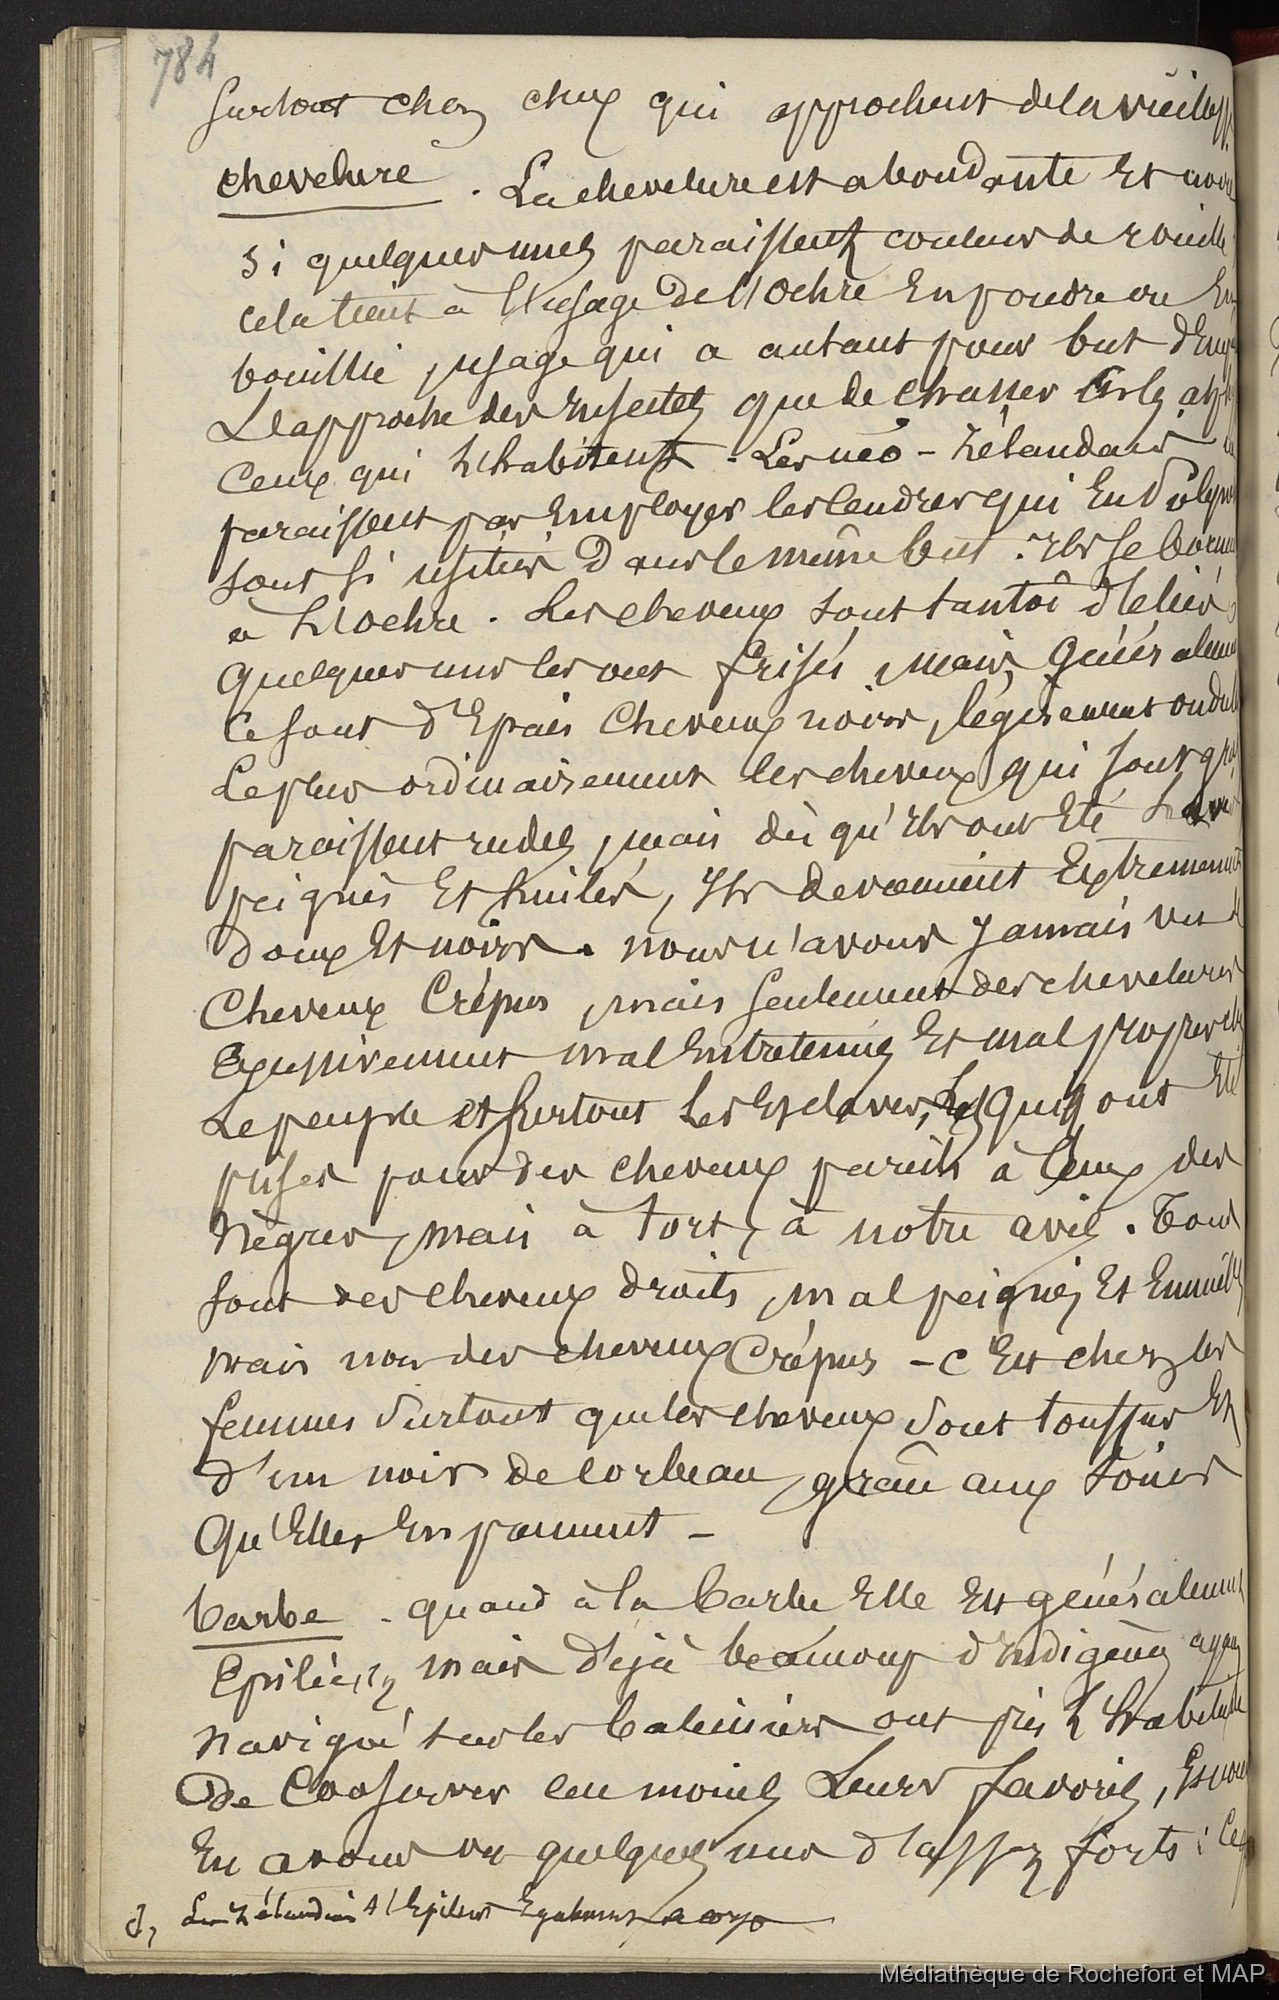 784
surtout chez ceux qui approchent de la vieilless
chevelure. La chevelure est abondante Et
si quelques unes paraissent couleur de rouille
cela tient à l'usage de l'ochre En poudre ou En
bouillie, usage qui a autant pour but
L'approche des Insectes que de chasser
ceux qui l'habitent. Les néo-zélandais
paraissent pas Employer les cendres qui En
sont si usitées Dans le même but. Ils se
à L'ochre. Les cheveux sont tantôt
quelques uns les ont frisés, mais, Généralem
Ce sont d'Epais Cheveux noirs, légèrement ondul
Le plus ordinairement les cheveux qui sont
paraissent rudes, mais dès qu'Ils ont Eté
peignés Et huilés, Ils deviennent Extremement
doux Et noirs. nous n'avons Jamais vu
Cheveux Crépus, mais seulement des chevelures
Excessivement mal Entretenues Et mal propres
Le peuple et surtout Les Esclaves, Les quels ont Eté
prises pour des cheveux pareils à Ceux des
Nègres, mais à tort, à notre avis. Tous
sont des cheveux droits, mal peignés Et
mais non des cheveux Crépus - c'Est chez les
femmes surtout que les cheveux sont touffus Et
d'un noir de corbeau, grâce aux soins
Qu'Elles En prennent -
barbe. quand à la barbe Elle Est généralement
Epilée, mais déjà beaucoup d'Indigènes ayant
navigué sur les baleiniers ont pris l'habitude
De Conserver au moins Leurs favoris, Et nous
En avons vu quelques uns d'assez forts:
Les Zélandais s'Epilent Egalement le corps
Médiathèque de Rochefort et MAP